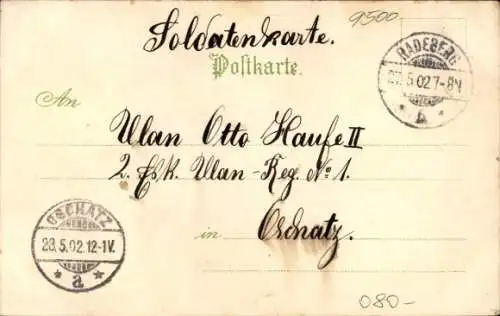 Soldatenkarte.
9500
Postkarte.
RADEBERG
5.02 7-8N
b
An
Ulan Otto Haufe II
2. Esk. Ulan-Reg. No 1.
in Oschatz.
OSCHATZ
28.5.02.12-1V.
* a *
080-